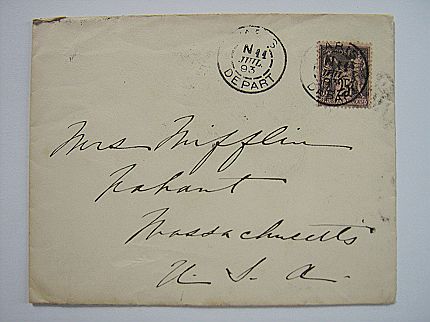 PARIS
11
JUIL
93
DEPART
25
Mrs Mifflin
Nahant
Massachusetts
U. S. A.